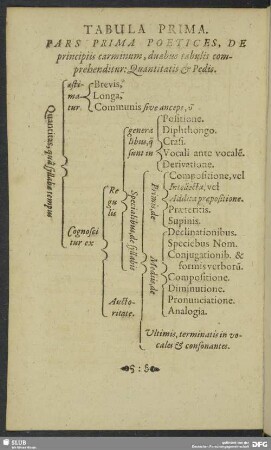 TABULA PRIMA.
PARS PRIMA POETICES, DE
principiis carminum, duabus tabulis com-
prehenditur: Quantitatis & Pedis.
Quantitas, quæ syllabæ tempus
æsti-
ma-
tur.
Brevis,
Longa,
Communis sive anceps,
Cognosci
tur ex
Re
gu
lis
genera
libus, q̃
sunt in
Positione.
Diphthongo.
Crasi.
Vocali ante vocalẽ.
Derivatione.
Specialibus, de syllabis
Primis, de
Compositione, vel
Addita præpositione.
Præteritis.
Supinis.
Mediis, de
Declinationibus.
Speciebus Nom.
Conjugationib. &
formis verborũ.
Compositione.
Diminutione.
Pronunciatione.
Analogia.
Ultimis, terminatis in vo-
cales & consonantes.
Aucto-
ritate.
SLUB
DFG